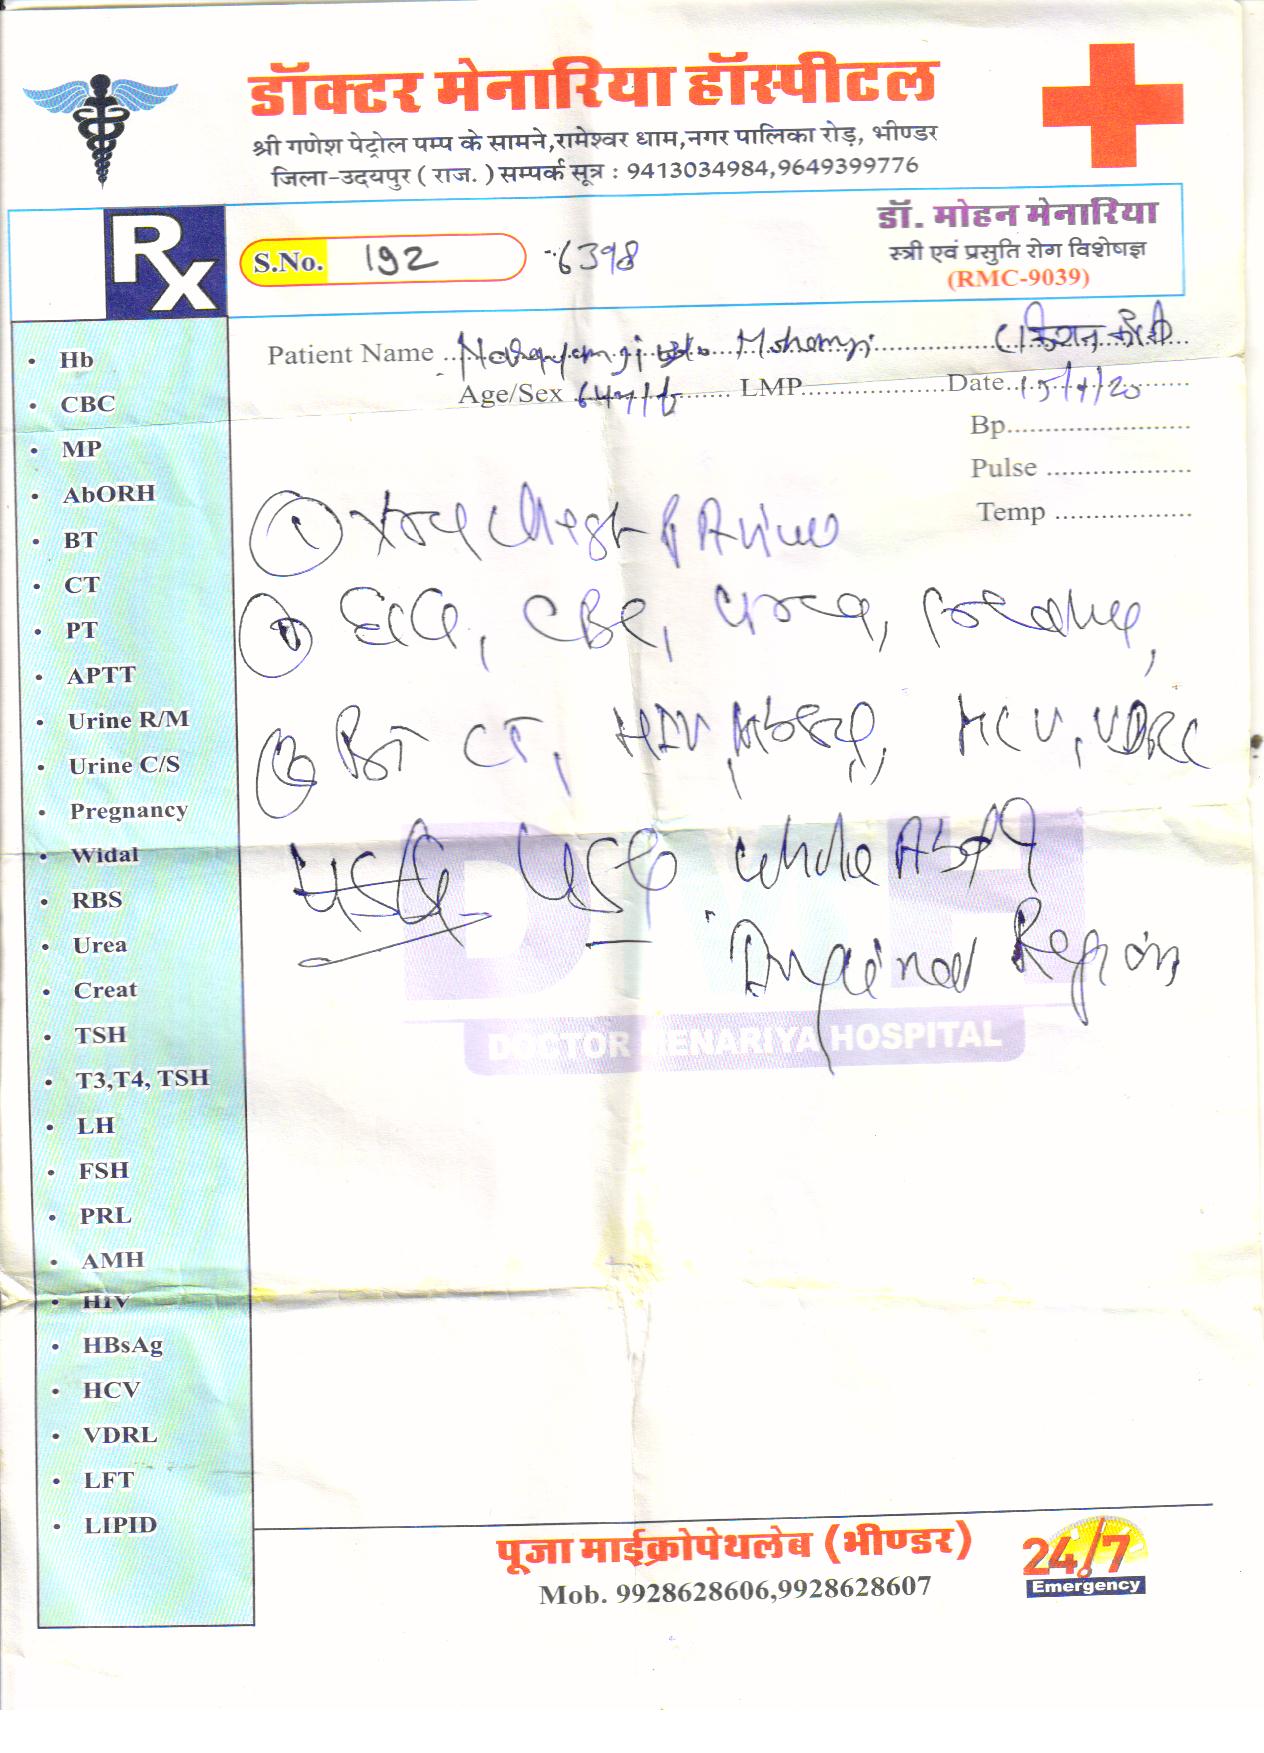 डॉक्टर मेनारिया हॉस्पीटल
श्री गणेश पेट्रोल पम्प के सामने,रामेश्वर धाम,नगर पालिका रोड़, भीण्डर
जिला-उदयपुर ( राज. ) सम्पर्क सूत्र : 9413034984,9649399776
Rx
S.No. 192 -6398
डॉ. मोहन मेनारिया
स्त्री एवं प्रसुति रोग विशेषज्ञ
(RMC-9039)
Patient Name
Age/Sex LMP Date
Bp
Pulse
Temp
① Xray Chest PA View
ECG, CBC, Urea,
BT CT, HIV, HCV, VDRL
USG whole
Region
DMH
DOCTOR MENARIYA HOSPITAL
• Hb
• CBC
• MP
• AbORH
• BT
• CT
• PT
• APTT
• Urine R/M
• Urine C/S
• Pregnancy
• Widal
• RBS
• Urea
• Creat
• TSH
• T3,T4, TSH
• LH
• FSH
• PRL
• AMH
• HIV
• HBsAg
• HCV
• VDRL
• LFT
• LIPID
पूजा माईक्रोपेथलेब (भीण्डर)
Mob. 9928628606,9928628607
24/7
Emergency